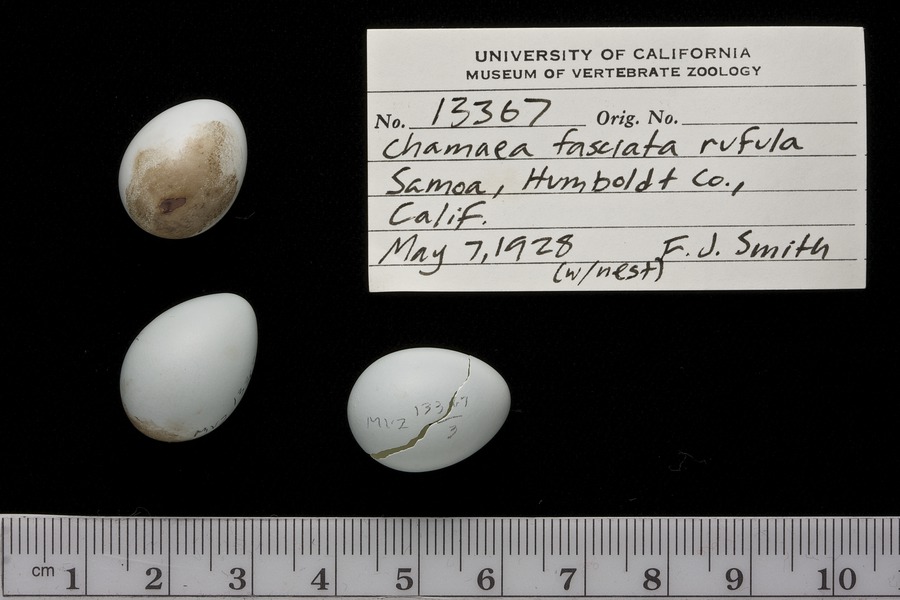 UNIVERSITY OF CALIFORNIA
MUSEUM OF VERTEBRATE ZOOLOGY
No. 13367 Orig. No.
Chamaea fasciata rufula
Samoa, Humboldt Co.,
Calif.
May 7, 1928 F. J. Smith
(w/nest)
MVZ 13367
3
cm 1 2 3 4 5 6 7 8 9 10